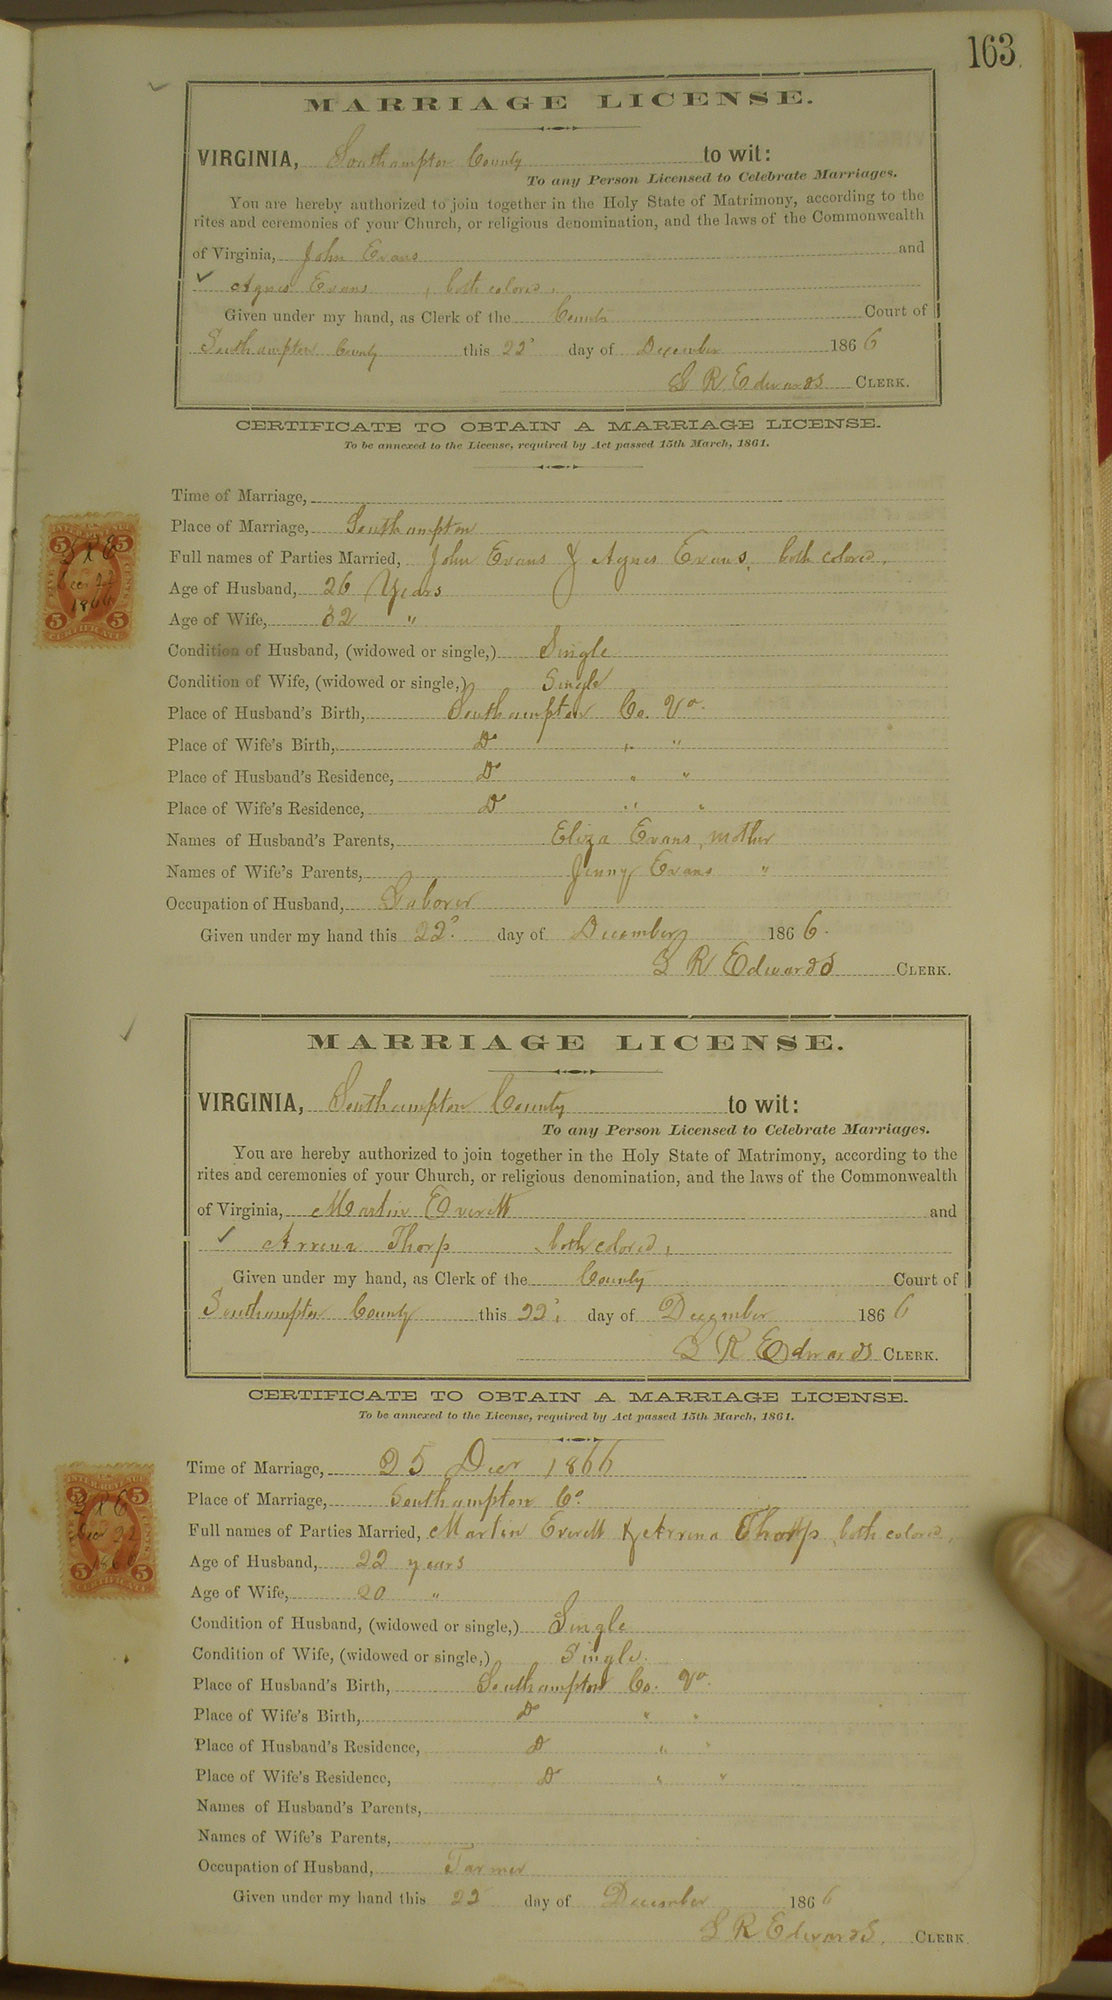 163
MARRIAGE LICENSE.
VIRGINIA, Southampton County to wit:
To any Person Licensed to Celebrate Marriages.
You are hereby authorized to join together in the Holy State of Matrimony, according to the
rites and ceremonies of your Church, or religious denomination, and the laws of the Commonwealth
of Virginia, John Evans and
Agnes Evans, both colored.
Given under my hand, as Clerk of the County Court of
Southampton County this 22d day of December 1866
L R Edwards CLERK.
CERTIFICATE TO OBTAIN A MARRIAGE LICENSE.
To be annexed to the License, required by Act passed 15th March, 1861.
Time of Marriage,
Place of Marriage, Southampton
Full names of Parties Married, John Evans & Agnes Evans, both colored.
Age of Husband, 26 Years
Age of Wife, 32 "
Condition of Husband, (widowed or single,) Single
Condition of Wife, (widowed or single,) Single
Place of Husband's Birth, Southampton Co. Va.
Place of Wife's Birth, Do " "
Place of Husband's Residence, Do " "
Place of Wife's Residence, Do " "
Names of Husband's Parents, Eliza Evans, mother
Names of Wife's Parents, Jenny Evans "
Occupation of Husband, Laborer
Given under my hand this 22d. day of December 1866.
L R Edwards CLERK.
MARRIAGE LICENSE.
VIRGINIA, Southampton County to wit:
To any Person Licensed to Celebrate Marriages.
You are hereby authorized to join together in the Holy State of Matrimony, according to the
rites and ceremonies of your Church, or religious denomination, and the laws of the Commonwealth
of Virginia, Martin Everett and
Arrena Thorp both colored,
Given under my hand, as Clerk of the County Court of
Southampton County this 22d. day of December 1866
L R Edwards CLERK.
CERTIFICATE TO OBTAIN A MARRIAGE LICENSE.
To be annexed to the License, required by Act passed 15th March, 1861.
Time of Marriage, 25 Decr 1866
Place of Marriage, Southampton Co.
Full names of Parties Married, Martin Everett & Arrena Thorp, both colored,
Age of Husband, 22 years
Age of Wife, 20 "
Condition of Husband, (widowed or single,) Single
Condition of Wife, (widowed or single,) Single.
Place of Husband's Birth, Southampton Co. Va.
Place of Wife's Birth, Do " "
Place of Husband's Residence, Do " "
Place of Wife's Residence, Do " "
Names of Husband's Parents,
Names of Wife's Parents,
Occupation of Husband, Farmer
Given under my hand this 22 day of December 1866
L R Edwards, CLERK